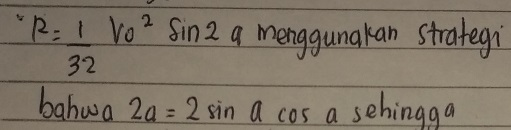 R = 1/32 Vo² Sin 2 a menggunakan strategi
bahwa 2a = 2 sin a cos a sehingga